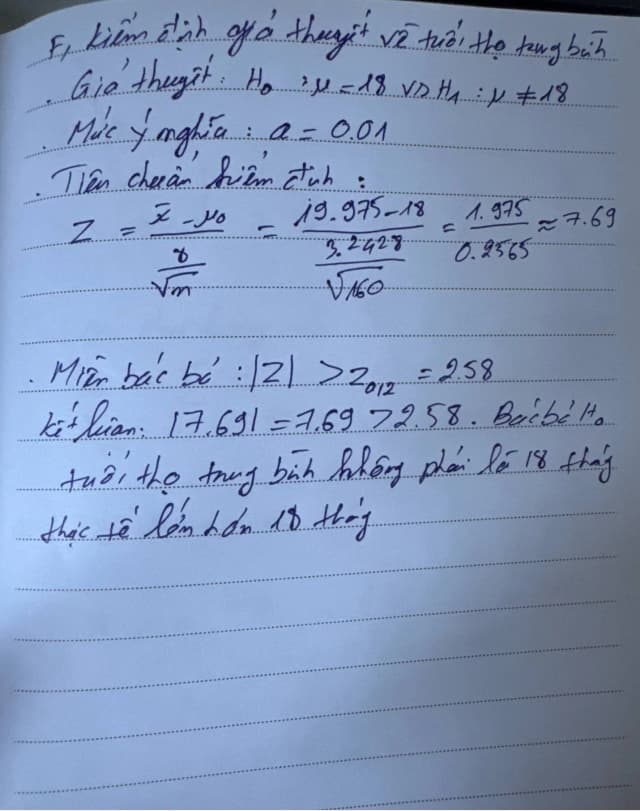 F, Kiểm định giả thuyết về tuổi thọ trung bình
. Giả thuyết : H₀ : μ = 18 vs H₁ : μ ≠ 18
. Mức ý nghĩa : α = 0.01
. Tiêu chuẩn kiểm định :
Z = (x̄ - μ₀) / (s/√n) = (19.975 - 18) / (3.2428/√160) = 1.975 / 0.2565 ≈ 7.69
. Miền bác bỏ : |Z| > Z α/2 = 2.58
Kết luận: |7.69| = 7.69 > 2.58. Bác bỏ H₀
tuổi thọ trung bình không phải là 18 tháng
thực tế lớn hơn 18 tháng